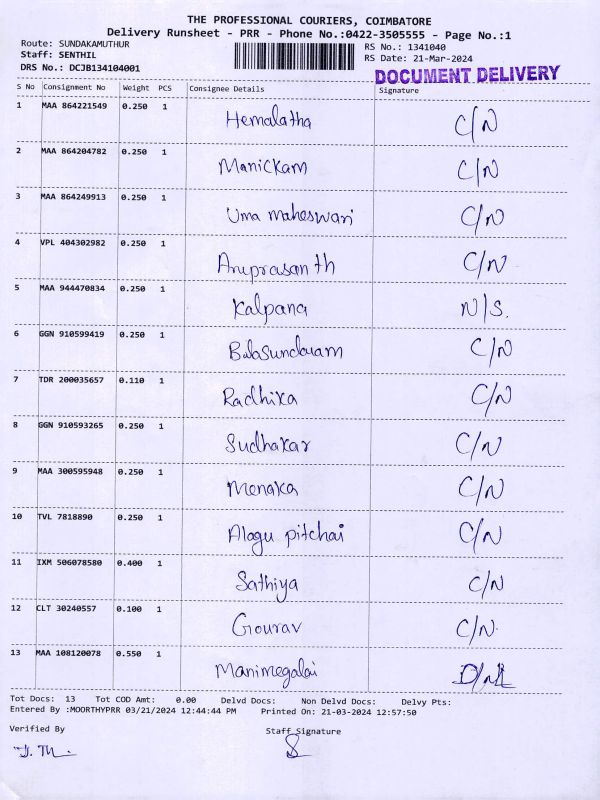 THE PROFESSIONAL COURIERS, COIMBATORE
Delivery Runsheet - PRR - Phone No.:0422-3505555 - Page No.:1
Route: SUNDAKAMUTHUR RS No.: 1341040
Staff: SENTHIL RS Date: 21-Mar-2024
DRS No.: DCJB134104001
DOCUMENT DELIVERY
S No Consignment No Weight PCS Consignee Details Signature
1 MAA 864221549 0.250 1 Hemalatha C/N
2 MAA 864204782 0.250 1 Manickam C/N
3 MAA 864249913 0.250 1 Uma maheswari C/N
4 VPL 404302982 0.250 1 Aruprasanth C/N
5 MAA 944470834 0.250 1 Kalpana N/S.
6 GGN 910599419 0.250 1 Balasundaram C/N
7 TDR 200035657 0.110 1 Radhika C/N
8 GGN 910593265 0.250 1 Sudhakar C/N
9 MAA 300595948 0.250 1 Menaka C/N
10 TVL 7818890 0.250 1 Alagu pitchai C/N
11 IXM 506078580 0.400 1 Sathiya C/N
12 CLT 30240557 0.100 1 Gourav C/N
13 MAA 108120078 0.550 1 Manimegalai
Tot Docs: 13 Tot COD Amt: 0.00 Delvd Docs: Non Delvd Docs: Delvy Pts:
Entered By :MOORTHYPRR 03/21/2024 12:44:44 PM Printed On: 21-03-2024 12:57:50
Verified By Staff Signature